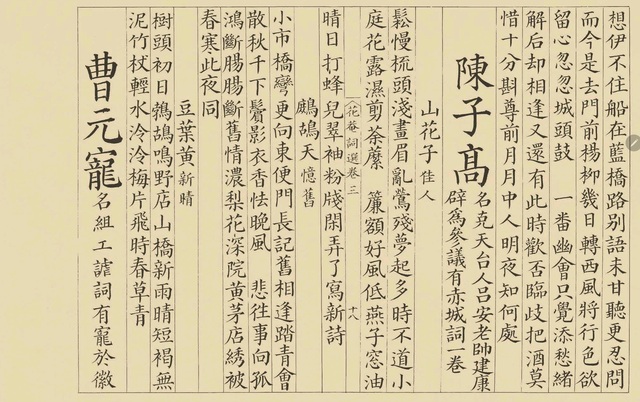 想伊不住船在藍橋路別語未甘聽更忍問
而今是去門前楊柳幾日轉西風將行色欲
留心忽忽城頭鼓　一番幽會只覺添愁緒
解后却相逢又還有此時歡否臨歧把酒莫
惜十分斟尊前月月中人明夜知何處
陳子髙 名克天台人呂安老帥建康
辟爲參議有赤城詞一卷
山花子 佳人
鬆慢梳頭淺畫眉亂鶯殘夢起多時不道小
庭花露濕剪荼䕷　簾額好風低燕子窓油
花菴詞選卷三　十八
晴日打蜂兒翠袖粉牋閑弄了寫新詩
鷓鴣天 憶舊
小市橋彎更向東便門長記舊相逢踏青會
散秋千下鬢影衣香怯晚風　悲往事向孤
鴻斷腸腸斷舊情濃梨花深院黃茅店綉被
春寒此夜同
豆葉黃 新晴
樹頭初日鵓鴣鳴野店山橋新雨晴短褐無
泥竹杖輕水泠泠梅片飛時春草青
曹元寵 名組工謔詞有寵於徽